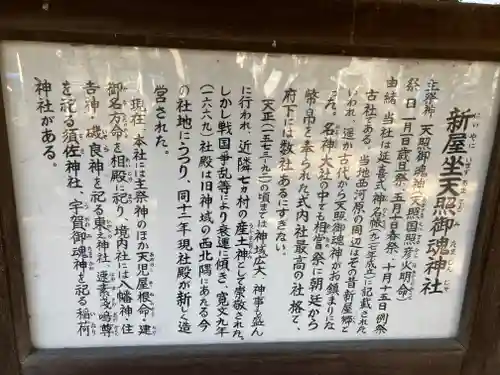 新屋坐天照御魂神社
主祭神　天照御魂神(天照国照彦火明命)
祭　日　一月一日歳旦祭、五月十日春祭、十月十五日例祭
由緒　当社は延喜式神名帳(九二七年成立)に記載された
古社である。当地西河原の周辺はその昔新屋郷と
いわれ、遥か古代から天照御魂神がお鎮まりにな
った。名神大社の中でも相嘗祭に朝廷から
幣帛を奉られた式内社最高の社格で、
府下には数社あるにすぎない。
天正(一五七三‐九二)の頃までは神域広大、神事も盛ん
に行われ、近隣七カ村の産土神として崇敬された。
しかし戦国争乱等により衰運に傾き、寛文九年
(一六六九)社殿は旧神域の西北隅にあたる今
の社地にうつり、同十一年現社殿が新しく造
営された。
現在、本社には主祭神のほか天児屋根命・建
御名方命を相殿に祀り、境内社には八幡神・住
吉神・磯良神を祀る東之神社、速素戔嗚尊
を祀る須佐神社、宇賀御魂神を祀る稲荷
神社がある。